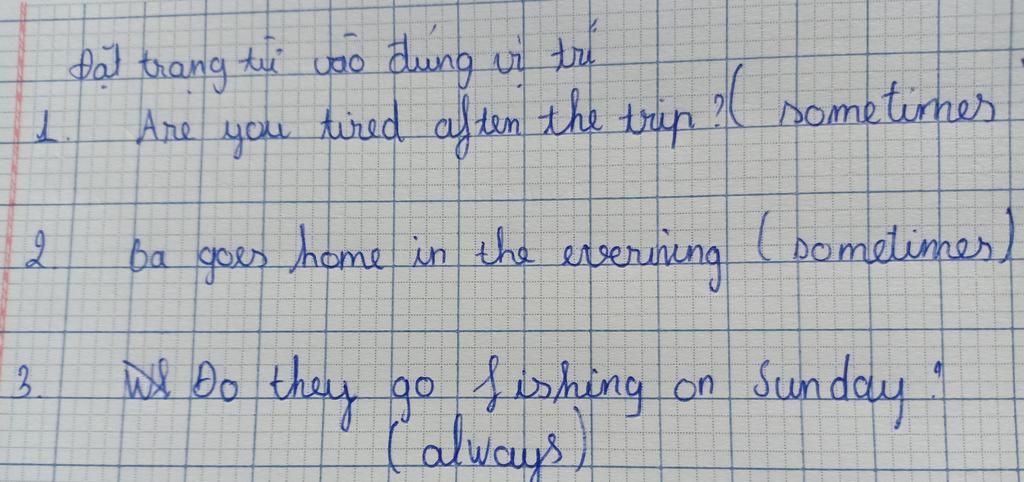 Đặt trạng từ vào đúng vị trí
1. Are you tired after the trip? ( sometimes
2 ba goes home in the evening ( sometimes)
3. Do they go fishing on Sunday?
( always)